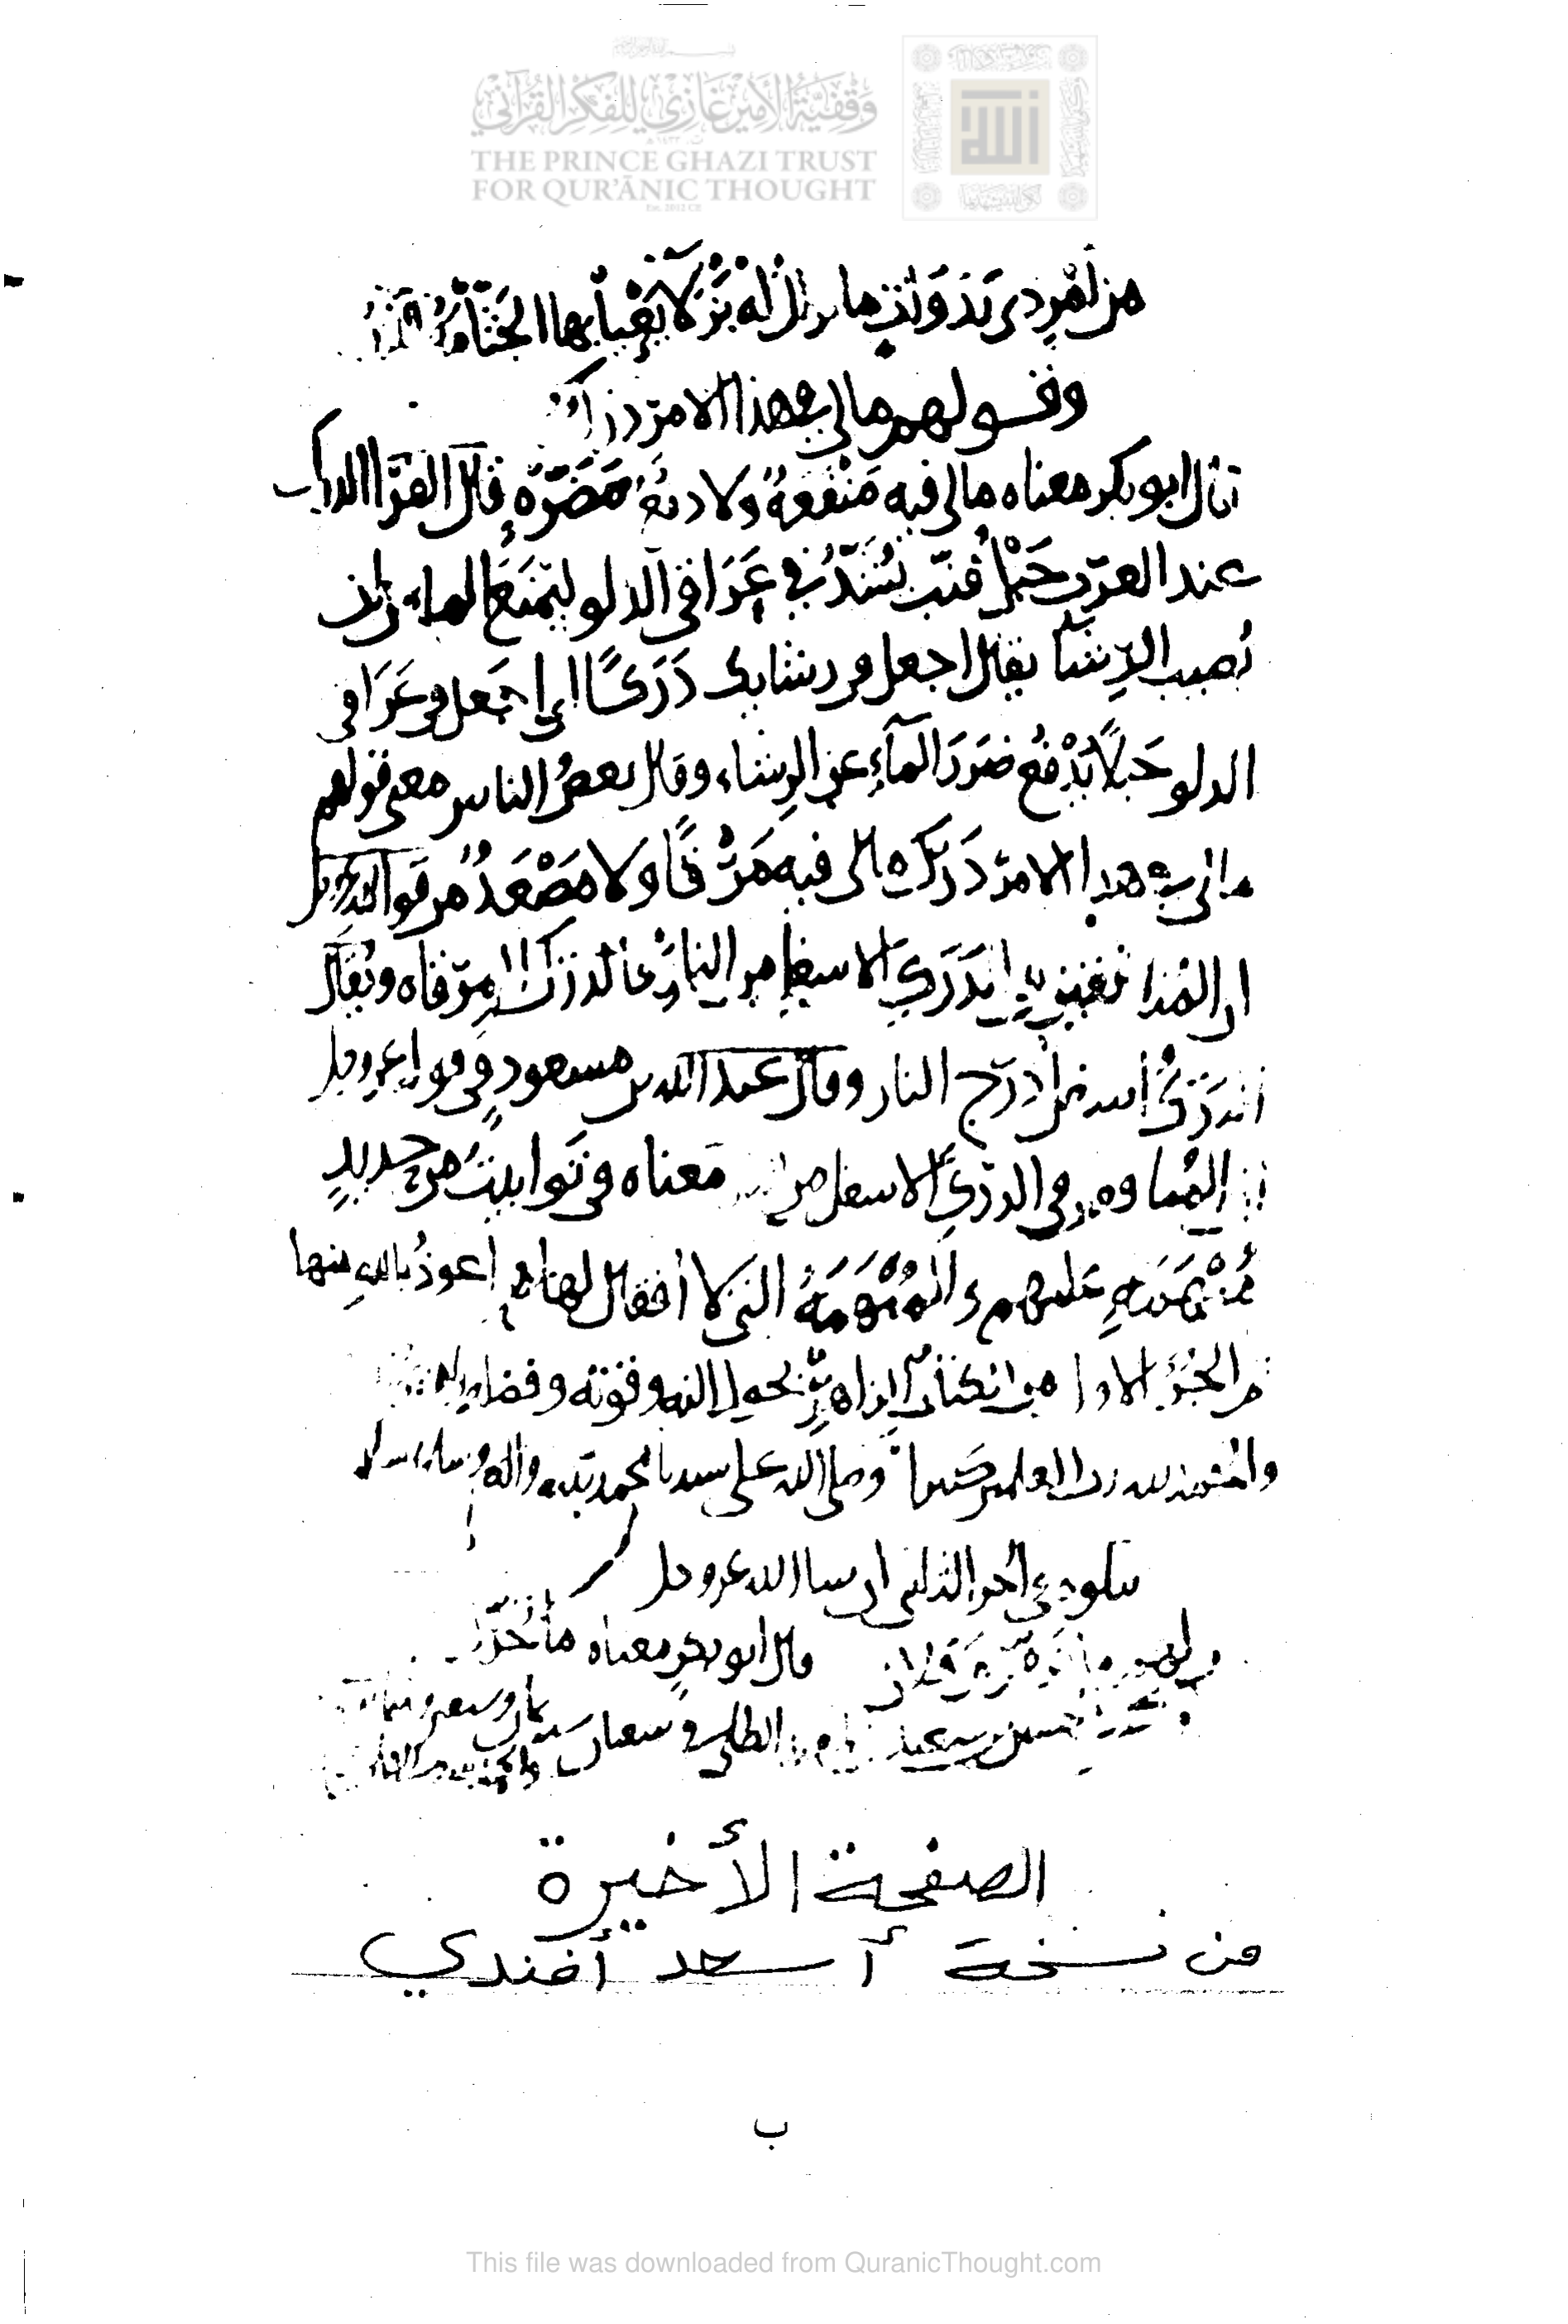 وقفية الأمير غازي للفكر القرآني
THE PRINCE GHAZI TRUST
FOR QUR'ĀNIC THOUGHT
Est. 2012 CE
الله
من امرِ ذي بَدَوَاتٍ ما تزال له بَزْلَاءُ يَعْيَا بها الجَثَّامَةُ
وقولهم ما لي في هذا الامر دَرَك
قال ابو بكر معناه ما لي فيه مَنْفَعَةٌ ولا دفعُ مَضَرَّةٍ قال الفرّا الدرك
عند العرب حَبْلُ قِنَّب يُشَدُّ في عَرَاقي الدلو ليَمْنَعَ الماء من ان
يُصيب الرِشآ يقال اجعل في رشايك دَرَكًا اي اجعل في عَرَاقي
الدلو حَبلًا يَدْفعُ ضَرَرَ المآءِ عن الرِشاء وقال بعضُ الناس معنى قولهم
ما لي في هذا الامر دَرَك ما لي فيه مَرْقًا ولا مَصْعَدٌ من قول الله عز وجل
ان المُنافقين في الدَرَكِ الاسفل من النار فالدرك المرقاه ويقال
الدَرَكُ اسفل دَرَج النار وقال عبد الله بن مسعود في قول الله عز وجل
ان المنافقين في الدركِ الاسفل من معناه في توابيتَ من حديدٍ
مُبْهَمَهٍ عليهم والمُبْهَمَةُ التي لا اقفال لها اعوذُ بالله منها
تم الجُزءُ الاول من كتاب الزاهر بحول الله وقوته وفضله
والحمد لله رب العلمين كثيرا وصلى الله على سيدنا محمد نبيه واله وسلم
يتلوه في الجزء الثاني ان شا الله عز وجل
وقولهم فلان قال ابو بكرٍ معناه ما
حسين سعيد
الصفحة الأخيرة
من نسخة أسعد أفندي
ب
This file was downloaded from QuranicThought.com